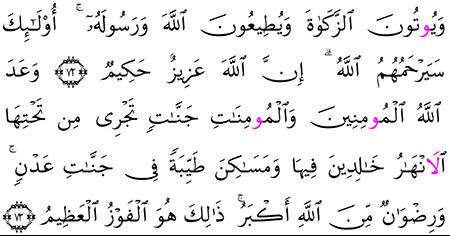 وَيُوتُونَ ٱلزَّكَوٰةَ وَيُطِيعُونَ ٱللَّهَ وَرَسُولَهُۥٓ ۚ أُوْلَٰٓئِكَ
سَيَرْحَمُهُمُ ٱللَّهُ ۗ إِنَّ ٱللَّهَ عَزِيزٌ حَكِيمٌ ٧٢ وَعَدَ
ٱللَّهُ ٱلْمُومِنِينَ وَٱلْمُومِنَٰتِ جَنَّٰتٍ تَجْرِى مِن تَحْتِهَا
ٱلَانْهَٰرُ خَٰلِدِينَ فِيهَا وَمَسَٰكِنَ طَيِّبَةً فِى جَنَّٰتِ عَدْنٍ ۚ
وَرِضْوَٰنٌ مِّنَ ٱللَّهِ أَكْبَرُ ۚ ذَٰلِكَ هُوَ ٱلْفَوْزُ ٱلْعَظِيمُ ٧٣